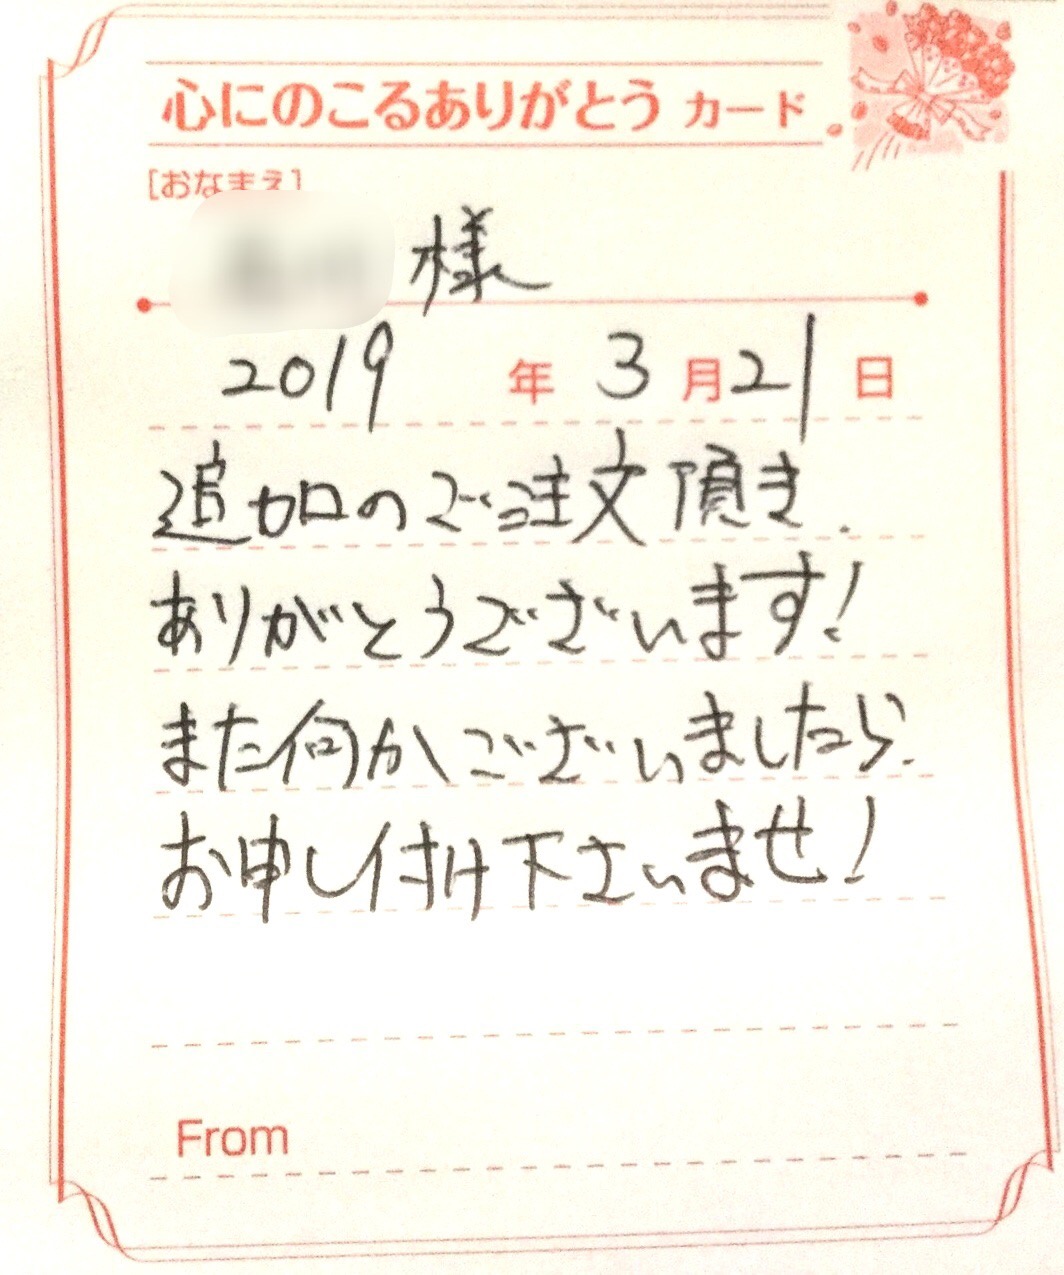 心にのこるありがとう カード
[おなまえ]
様
2019 年 3 月 21 日
追加のご注文頂き、
ありがとうございます!
また何かございましたら、
お申し付け下さいませ!
From